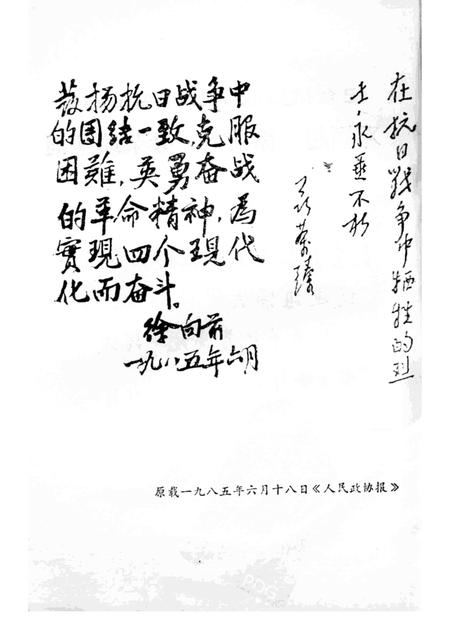 在抗日战争中牺牲的烈
士，永垂不朽
聂荣臻
发扬抗日战争中
的团结一致，克服
困难，英勇奋战
的革命精神，为
實現四个現代
化而奋斗。
徐向前
一九八五年六月
原载一九八五年六月十八日《人民政协报》